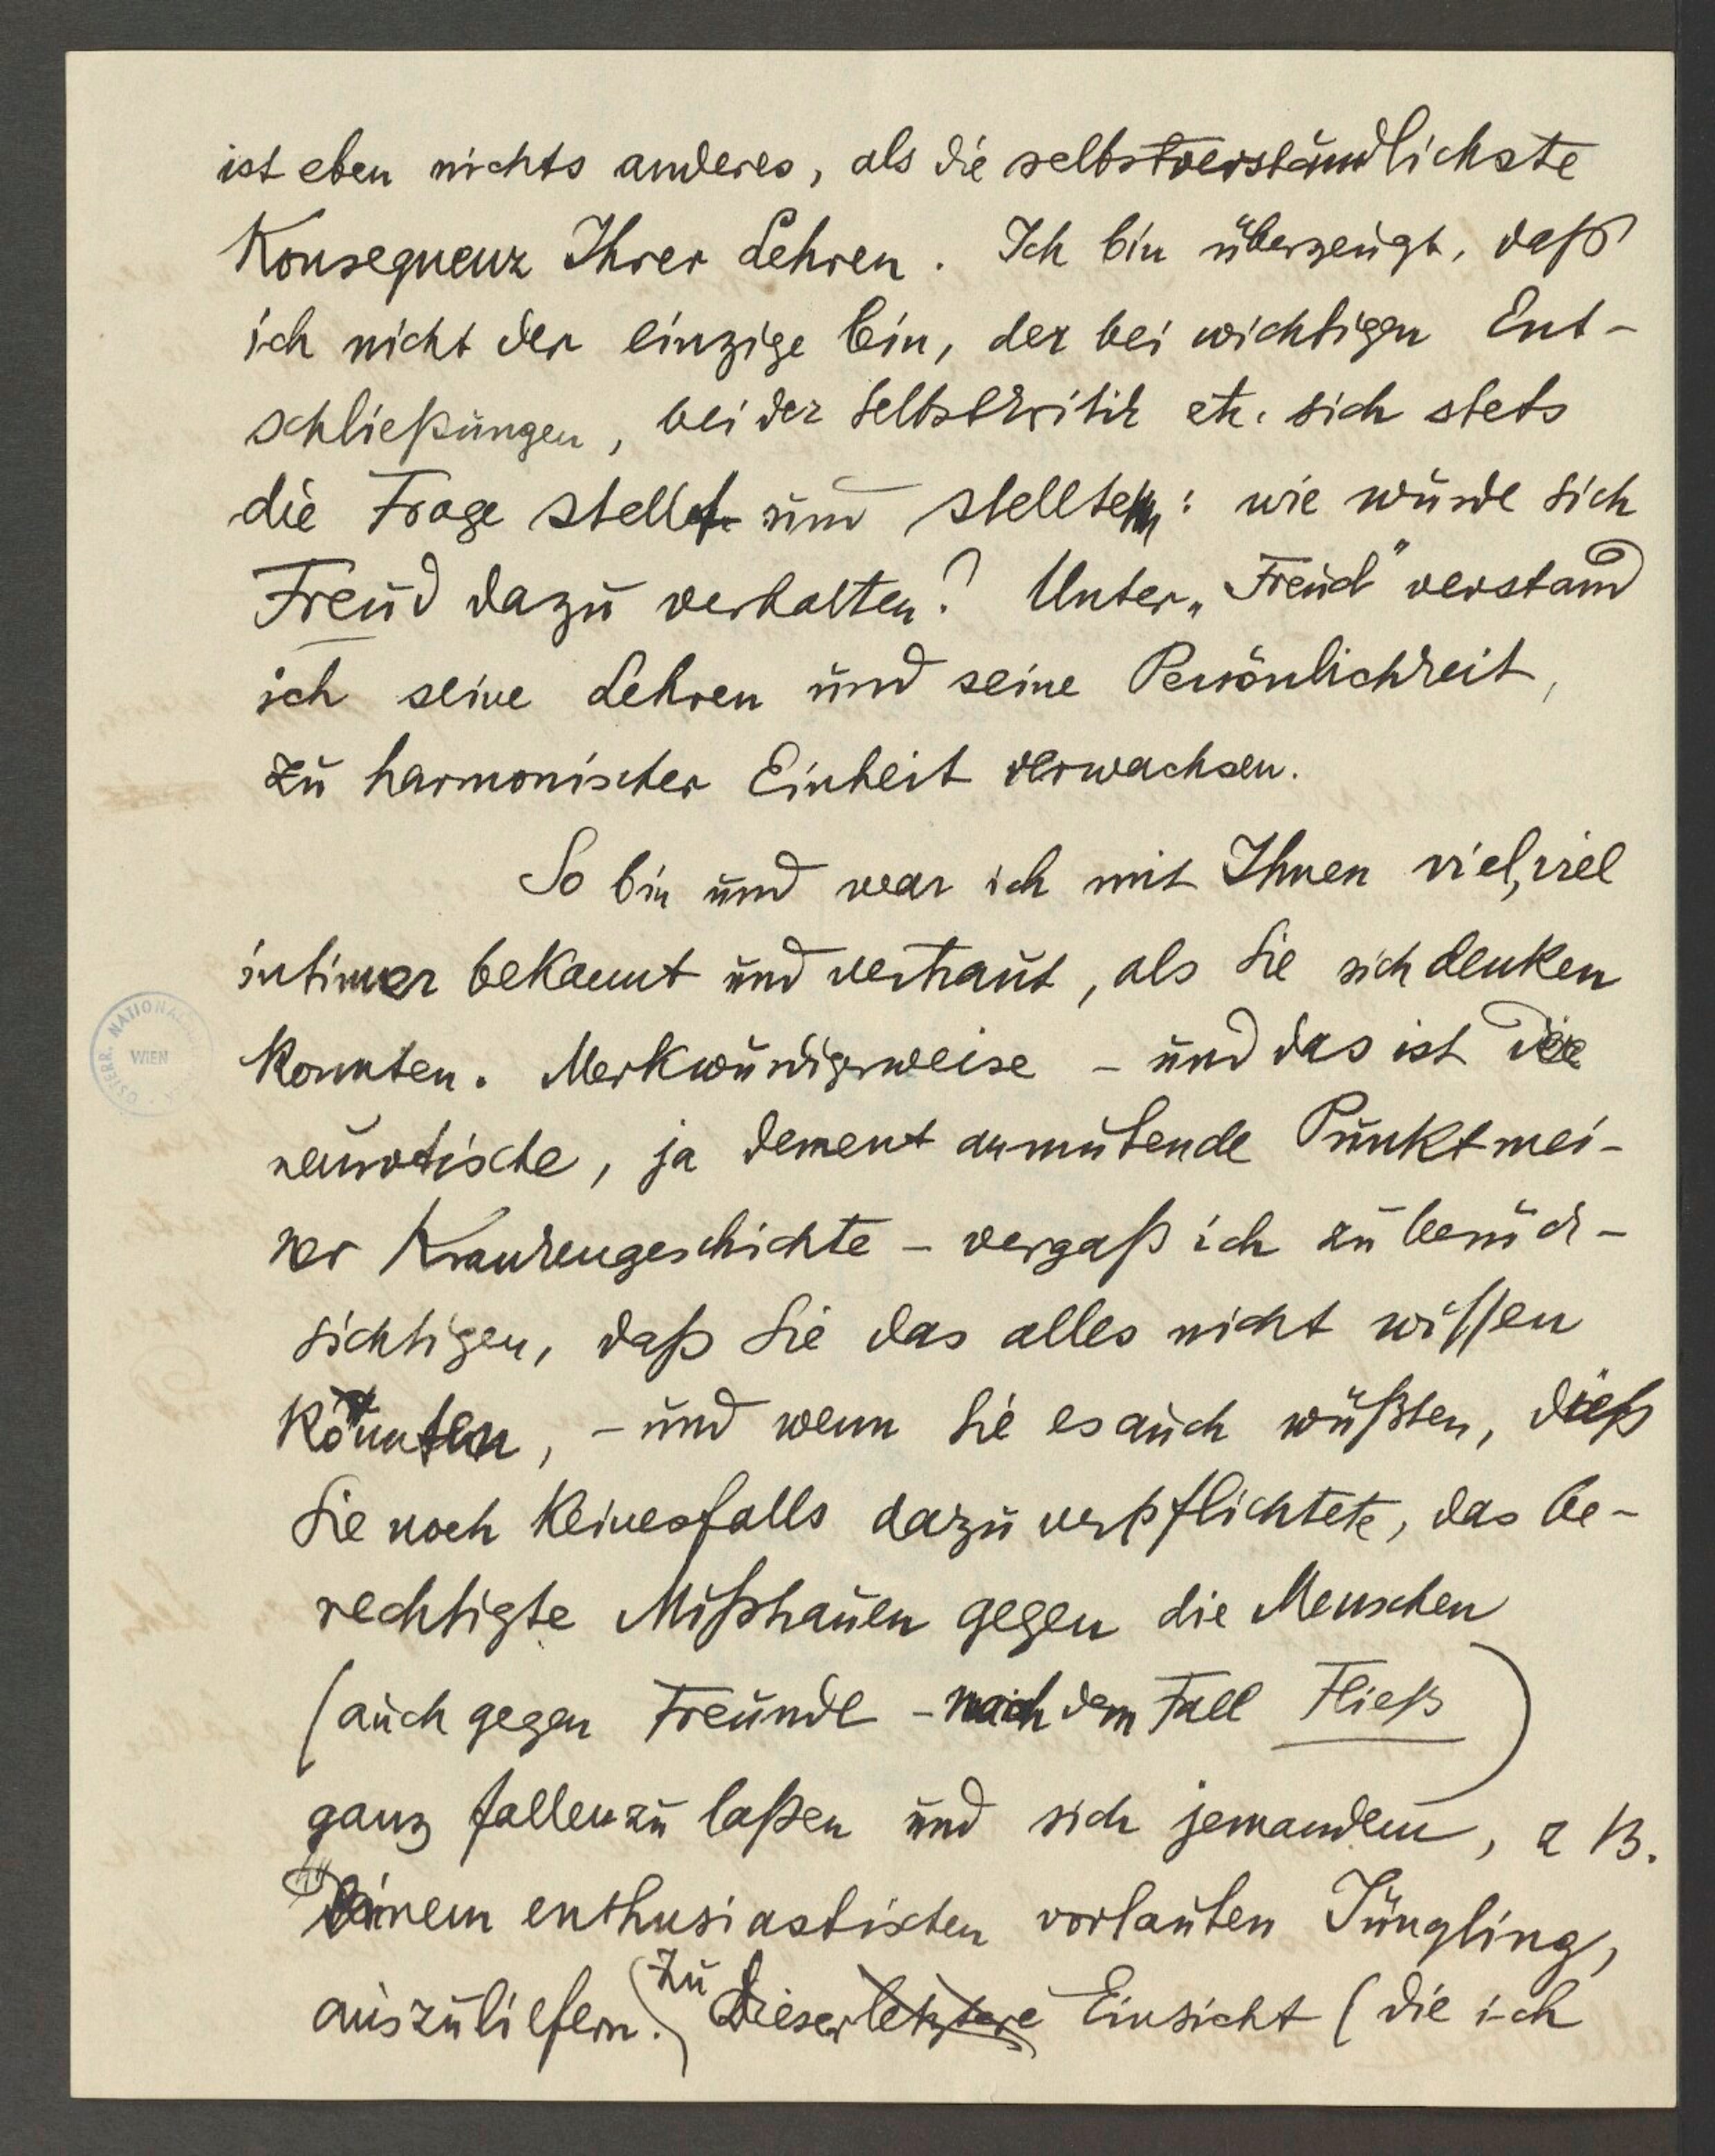 ist eben nichts anderes, als die selbstverständlichste
Konsequenz Ihrer Lehren. Ich bin überzeugt, daß
ich nicht der einzige bin, der bei wichtigen Ent-
schließungen, bei der Selbstkritik etc. sich stets
die Frage stellt und stellte: wie würde sich
Freud dazu verhalten? Unter „Freud" verstand
ich seine Lehren und seine Persönlichkeit,
zu harmonischer Einheit verwachsen.
So bin und war ich mit Ihnen viel, viel
intimer bekannt und vertraut, als Sie sich denken
konnten. Merkwürdigerweise – und das ist der
neurotische, ja dement anmutende Punkt mei-
ner Krankengeschichte – vergaß ich zu berück-
sichtigen, daß Sie das alles nicht wissen
konnten, – und wenn Sie es auch wüßten, dieß
Sie noch keinesfalls dazu verpflichtete, das be-
rechtigte Mißtrauen gegen die Menschen
(auch gegen Freunde – nach dem Fall Fließ)
ganz fallen zu laßen und sich jemandem, z B.
einem enthusiastischen vorlauten Jüngling,
auszuliefern. Zu dieser letztere Einsicht (die ich
ÖSTERR. NATIONAL
WIEN